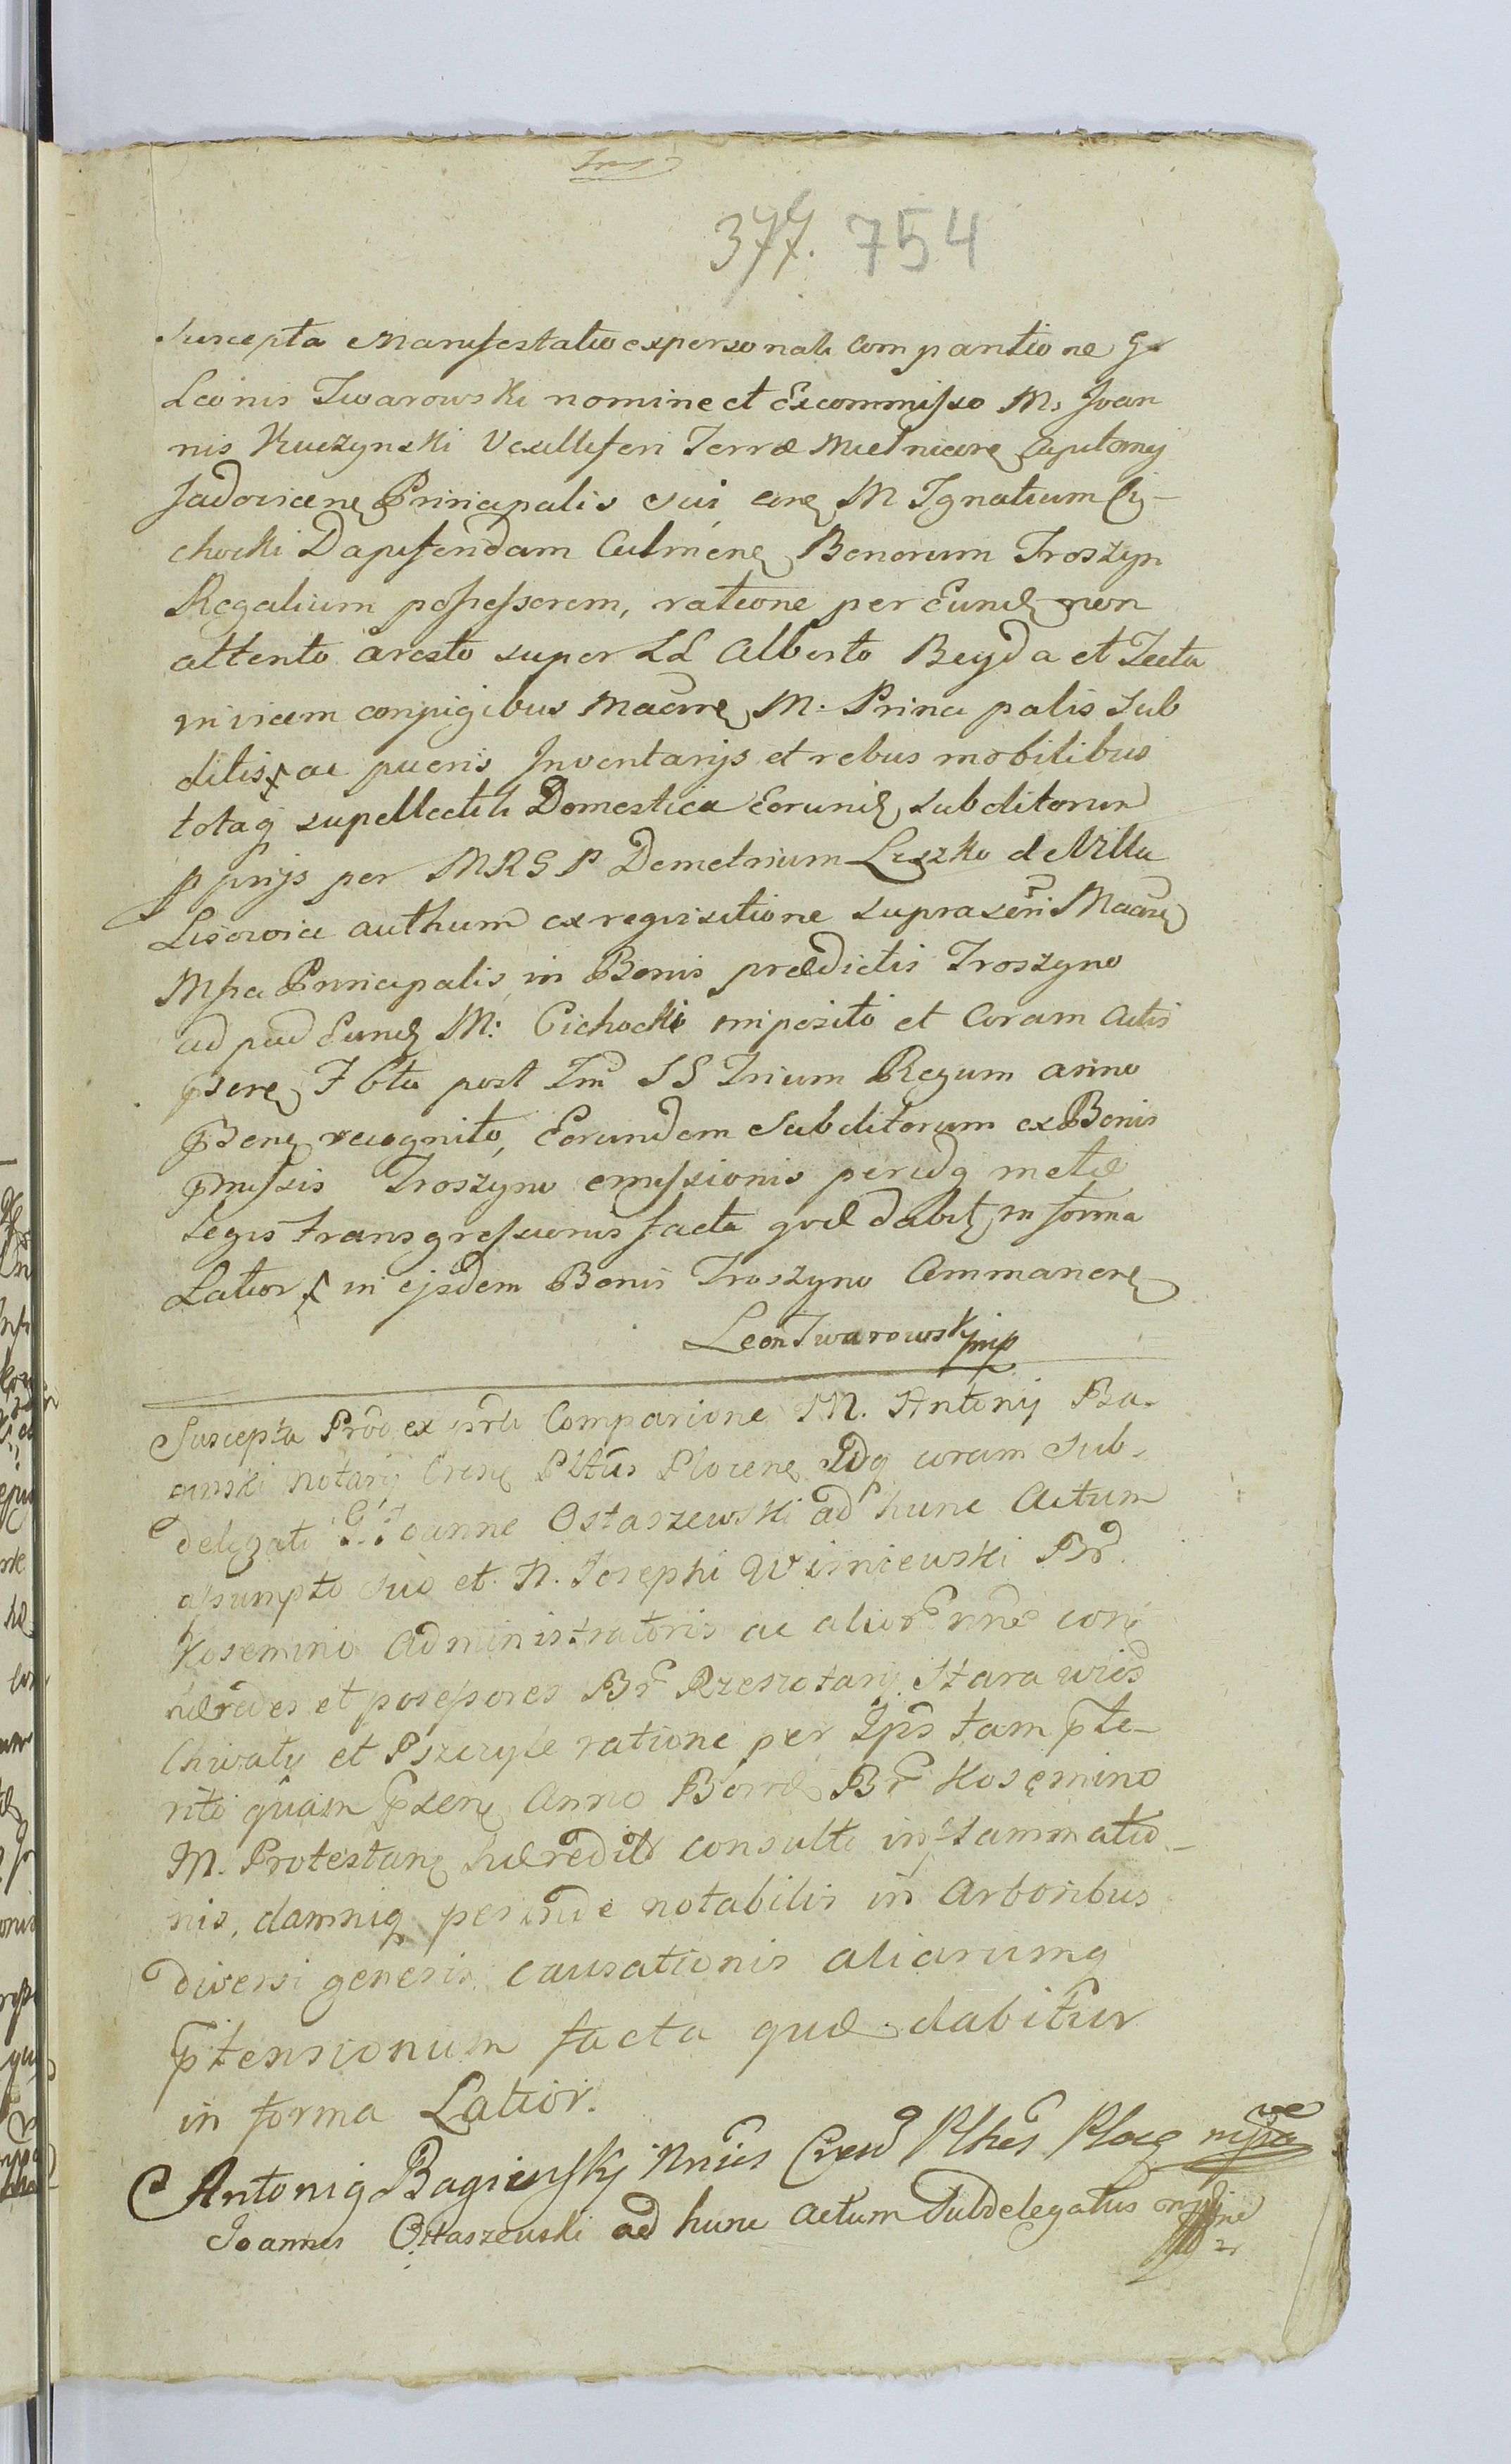 377. 754
Suscepta Manifestatio ex personali Comparitione G
Leonis Twarowski nomine et Ex commisso M. Joan
nis Kuczynski Vexilliferi Terræ Mielnicen Capitanej
Principalis sui, con M Ignatium Ci-
chocki Dapiferidam Culmen Bonorum Troszyn
Regalium possessorem, ratione per Eund non
attento aresto super LL Alberto Beyda et Tecla
invicem conjugibus M. Principalis Sub
ditis ac pueris Inventarijs et rebus mobilibus
totaq supellectili Domestica Eorund subditorum
pprijs per MRGP Demetrium Leszko de Villa
Lisowice authum ex reqvisitione suprascri
Principalis in Bonis prædictis Troszyno
ad pud Eund M: Cichocki imposito et Coram Actis
psen Fbta post SS Trium Regum anno
recognito, Eorundem Subditorum ex Bonis
pmissis Troszyno emissionis peridq metæ
legis transgressionis facta qvæ dabit in forma
Latior in ejsdem Bonis Troszyno Commanen
Leon Twarowski mp
Suscepta Pro ex prli Comparione M. Antonij Ba-
ginski Notarij Plocen Idq coram Sub-
delegato G. Joanne Ostaszewski ad hunc Actum
assumpto suo et N. Josephi Wisniewski Br.
Kosemino Administratoris ac alior con
hæredes et possessores Br Rzeszotary Stara wies
Chwały et Pszczyle ratione per Ips tam pte-
rito quam psen Anno Br Kosęmino
M. Protestan hæredit consulti inflammatio-
nis, damniq perinde notabilis in Arboribus
diversi generis causationis aliarumq
ptensionum facta quæ dabitur
in forma Latior.
Antonig Baginskj Plock mpa
Joannes Ostaszewski ad hunc Actum Subdelegatus mp